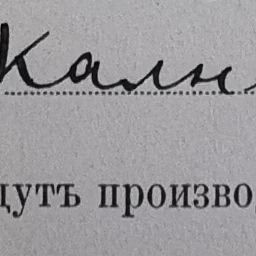 Калн
дутъ произво